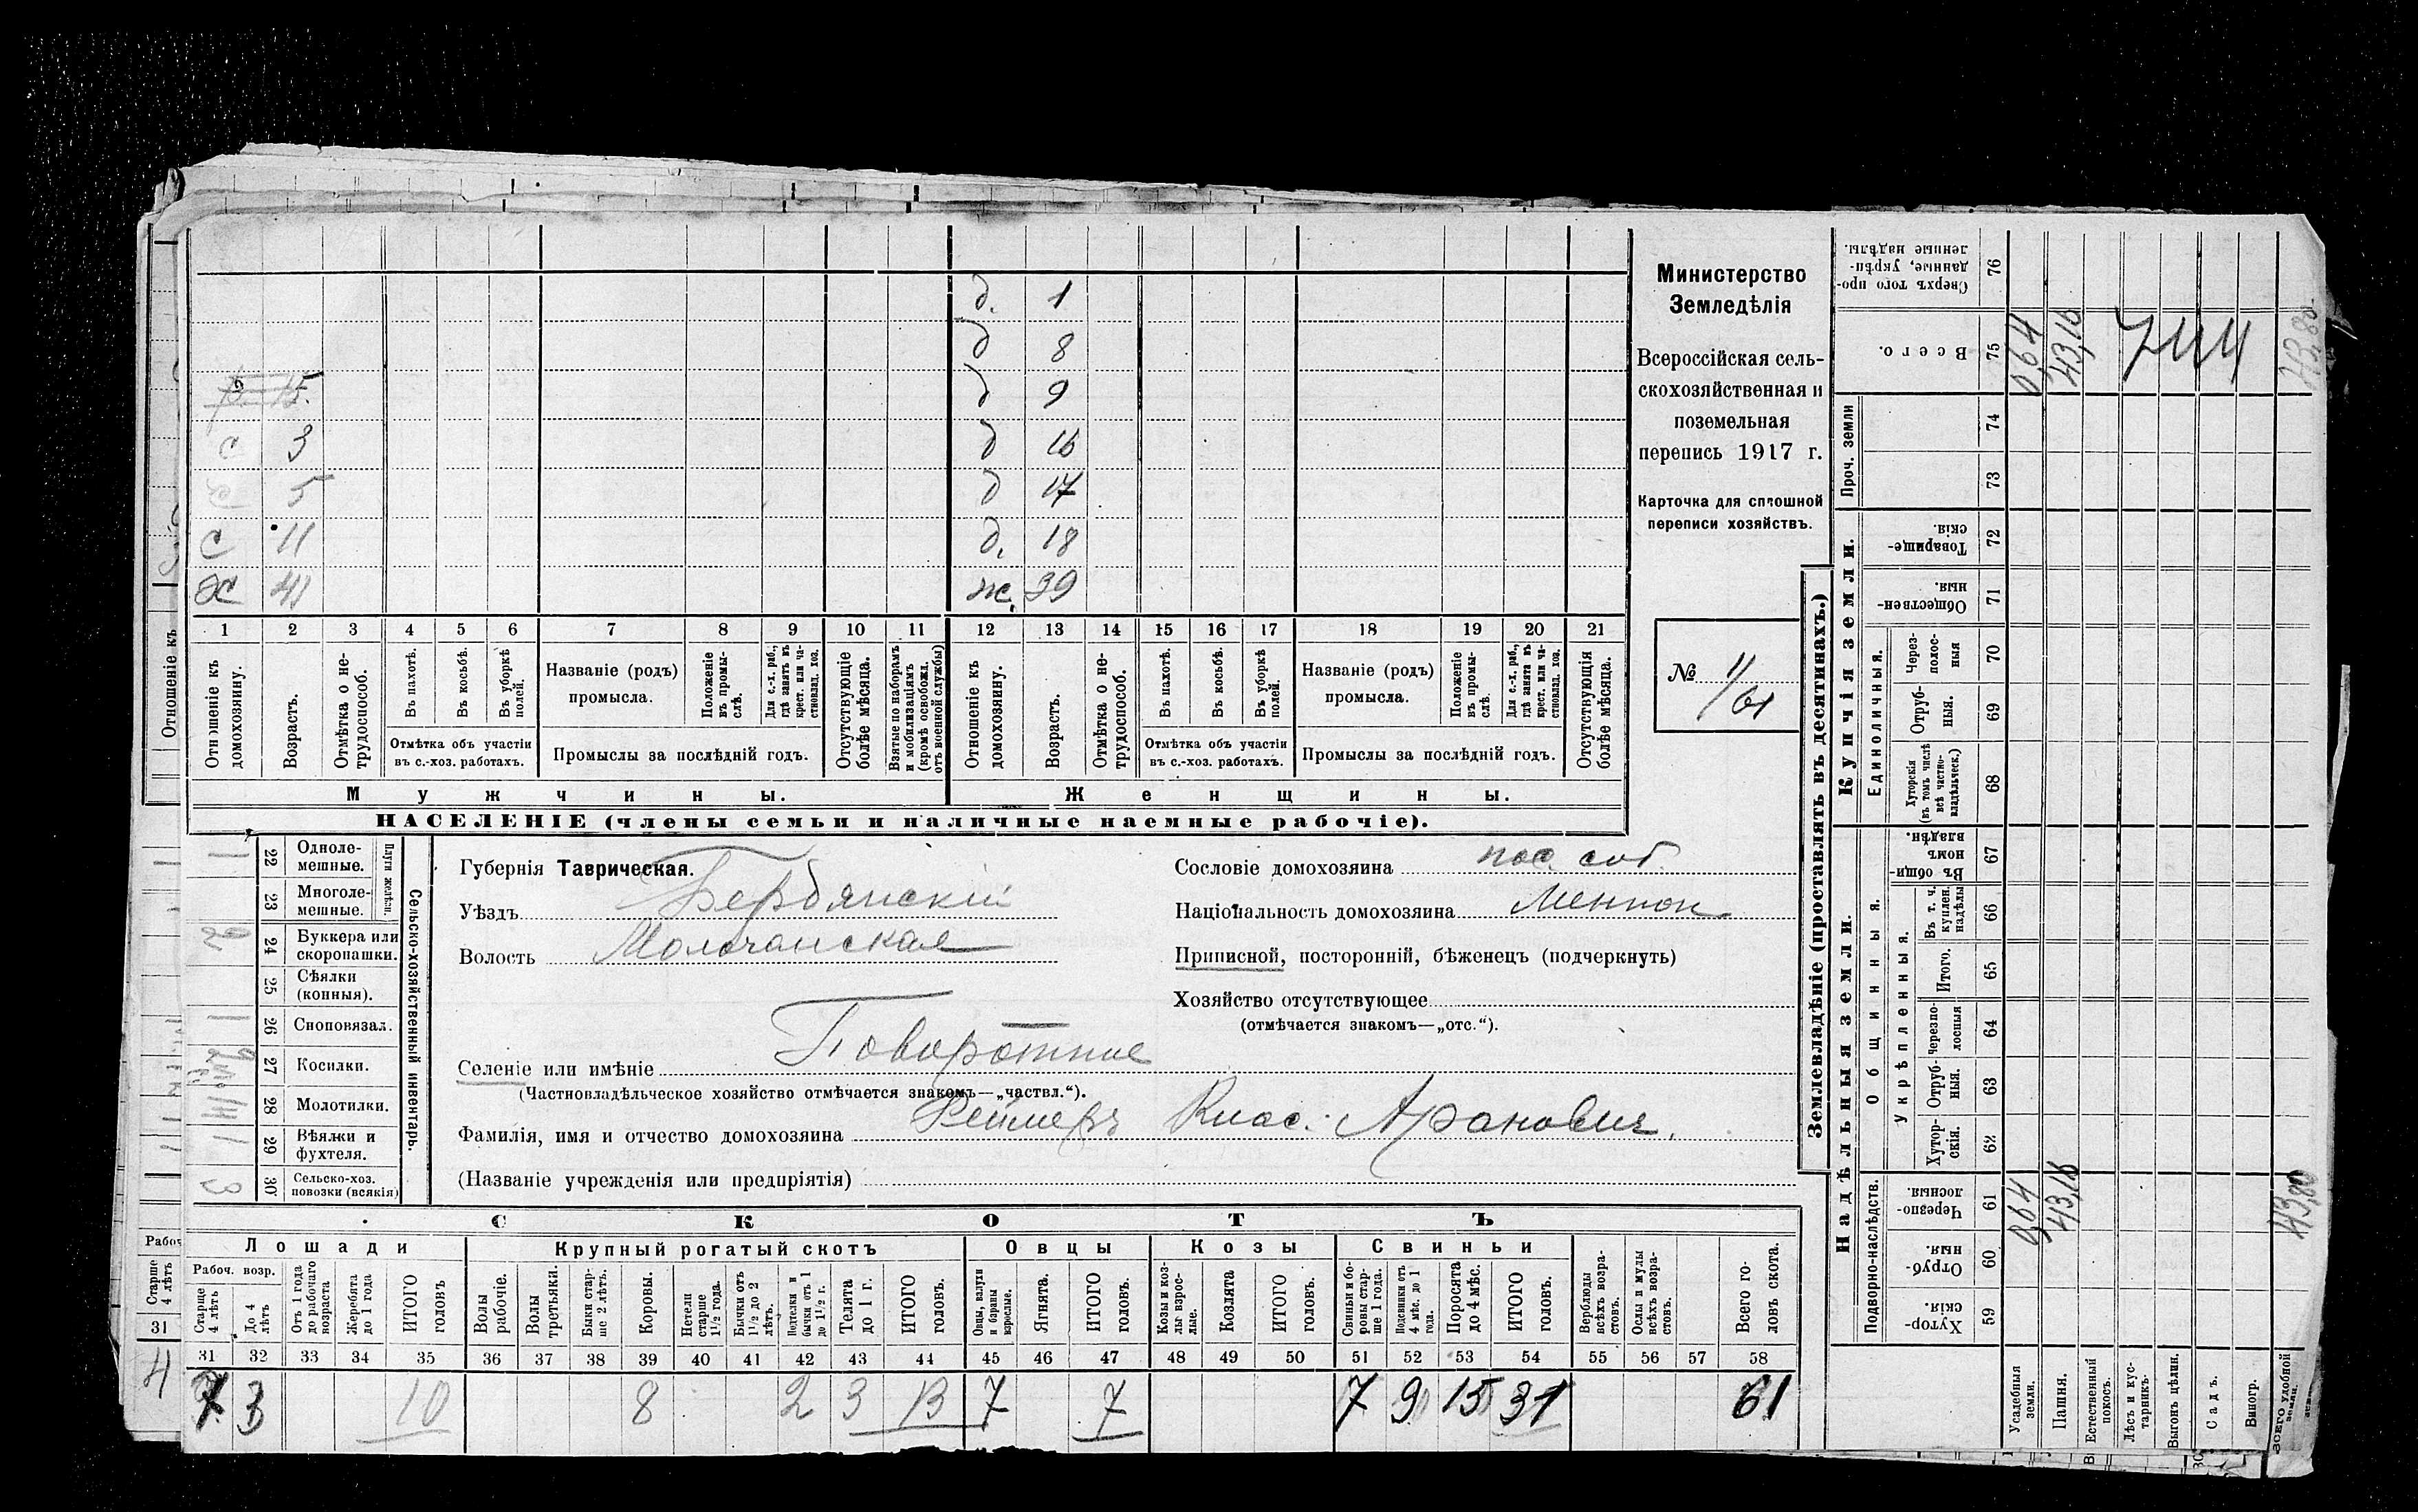 д. 1
д 8
15. д 9
с 3 д 16
5 д 17
с 11 д. 18
х 41 ж. 39
1 2 3 4 5 6 7 8 9 10 11 12 13 14 15 16 17 18 19 20 21
Отношеніе къ домохозяину.
Возрастъ.
Отмѣтка о нетрудоспособ.
Въ пахотѣ.
Въ косьбѣ.
Въ уборкѣ полей.
Отмѣтка объ участіи
въ с.-хоз. работахъ.
Названіе (родъ)
промысла.
Положеніе въ промыслѣ.
Для с.-х. раб., гдѣ занятъ въ крест. или частновлад. хоз.
Промыслы за послѣдній годъ.
Отсутствующіе болѣе мѣсяца.
Взятые по наборамъ и мобилизаціямъ (кромѣ освобожд. отъ военной службы)
Отношеніе къ домохозяину.
Возрастъ.
Отмѣтка о нетрудоспособ.
Въ пахотѣ.
Въ косьбѣ.
Въ уборкѣ полей.
Отмѣтка объ участіи
въ с.-хоз. работахъ.
Названіе (родъ)
промысла.
Положеніе въ промыслѣ.
Для с.-х. раб., гдѣ занята въ крест. или частновлад. хоз.
Промыслы за послѣдній годъ.
Отсутствующія болѣе мѣсяца.
Мужчины.
Женщины.
НАСЕЛЕНІЕ (члены семьи и наличные наемные рабочіе).
Министерство
Земледѣлія
Всероссійская сель-
скохозяйственная и
поземельная
перепись 1917 г.
Карточка для сплошной
переписи хозяйствъ.
№ 11/61
Отношеніе къ
Сельско-хозяйственный инвентарь.
Плуги желѣзн.
22 Однолемешные. 1
23 Многолемешные.
24 Буккера или скоропашки. 2
25 Сѣялки (конныя).
26 Сноповязал. 1
27 Косилки.
28 Молотилки.
29 Вѣялки и фухтеля. 1
30 Сельско-хоз. повозки (всякія) 3
Губернія Таврическая.
Уѣздъ Бердянскій
Волость Молочанская
Селеніе или имѣніе
(Частновладѣльческое хозяйство отмѣчается знакомъ—„частвл.“).
Фамилія, имя и отчество домохозяина Реймеръ Клас. Аранович.
(Названіе учрежденія или предпріятія)
Сословіе домохозяина пос. соб.
Національность домохозяина Меннон
Приписной, посторонній, бѣженецъ (подчеркнуть)
Хозяйство отсутствующее
(отмѣчается знакомъ—„отс.“).
СКОТЪ
Лошади
Крупный рогатый скотъ
Овцы
Козы
Свиньи
Рабоч. возр.
Старше 4 лѣтъ
До 4 лѣтъ
Отъ 1 года до рабочаго возраста
Жеребята до 1 года
ИТОГО головъ
Волы рабочіе.
Волы третьяки.
Быки старше 2 лѣтъ.
Коровы.
Нетели старше 1½ года.
Бычки отъ 1½ до 2 лѣтъ.
Подтелки и бычки отъ 1 до 1½ г.
Телята до 1 г.
ИТОГО головъ.
Овцы, валухи и бараны взрослые.
Ягнята.
ИТОГО головъ.
Козы и козлы взрослые.
Козлята
ИТОГО головъ.
Свиньи и боровы старше 1 года.
Подсвинки отъ 4 мѣс. до 1 года.
Поросята до 4 мѣс.
ИТОГО головъ.
Верблюды всѣхъ возрастовъ.
Ослы и мулы всѣхъ возрастовъ.
Всего головъ скота.
31 32 33 34 35 36 37 38 39 40 41 42 43 44 45 46 47 48 49 50 51 52 53 54 55 56 57 58
7 3 10 8 2 3 13 7 7 7 9 15 31 61
Рабоч
Старше 4 лѣтъ
31
4
Землевладѣніе (проставлять въ десятинахъ.)
Купчія земли.
Надѣльныя земли.
Сверхъ того проданные, укрѣпленные надѣлы. 76
Всего. 75 0,64 43,16 43,80
744
Проч. земли 74
73
Товарищескія. 72
Общественныя. 71
Единоличныя.
Черезполосныя 70
Отрубныя. 69
Хуторскія (въ томъ числѣ всѣ частновладѣльческ.) 68
Общинныя.
Въ общинномъ владѣн. 67
Укрѣпленныя.
Въ т. ч. куплен. надѣлы 66
Итого. 65
Черезполосныя 64
Отрубныя. 63
Хуторскія. 62
Подворно-наслѣдств.
Черезполосныя. 61 0,64 43,16 43,80
Отрубныя. 60
Хуторскія. 59
Усадебныя земли.
Пашня.
Естественный покосъ.
Лѣсъ и кустарникъ.
Выгонъ цѣлин.
Садъ.
Виногр.
Всего удобной земли.